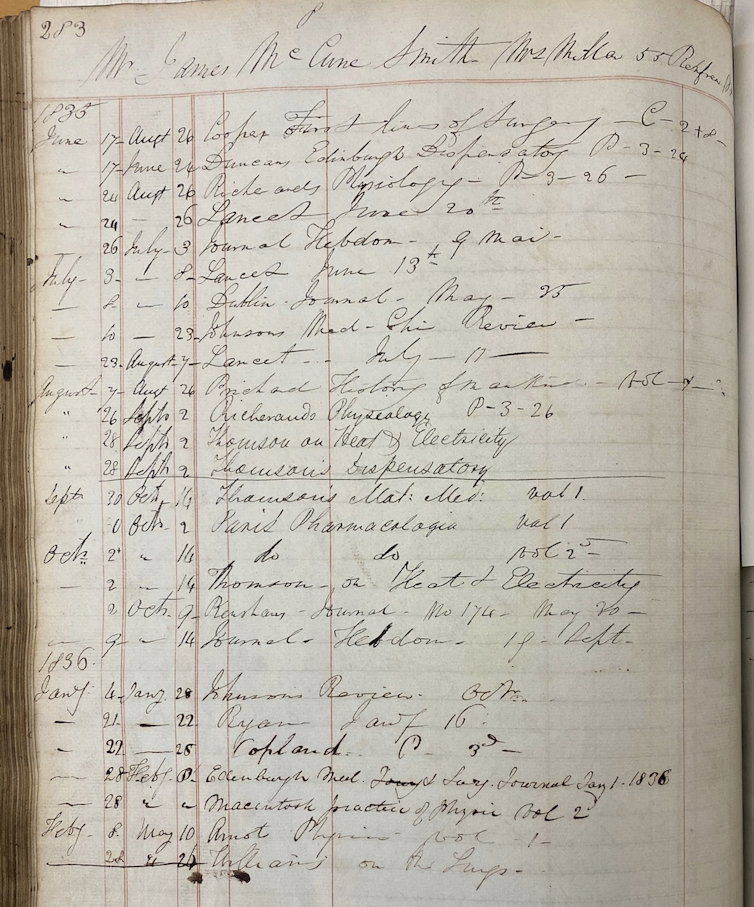 283
Mr James McCune Smith - Mrs Milla 55 Renfrew
1835
June 17 - Augt 26 Cooper First lines of Surgery - C - 2 + 8 -
" 17 - June 24 Duncans Edinburgh Dispensatory P - 3 - 24
" 24 Augt 26 Richerands Physiology - P - 3 - 26 -
" 24 — 26 Lancet June 20th
26 July - 3 Journal Hebdom - 9 Mai -
July - 3 - — 8 - Lancet June 13th
— 8 - — 10 Dublin Journal - May - 35
— 10 — 23 - Johnsons Med - Chi Review -
— 23 - August - 7 - Lancet - - July - 11 —
August - 7 - Augt 26 Prichard History of mankind - vol
" 26 Septr 2 Richerands Physeology P - 3 - 26
" 28 Septr 2 Thomson on Heat & Electricity
" 28 Septr 2 Thomson's Dispensatory
Septr 30 Octr 14 Thomson's Mat: Med: vol 1
Octr 2 Paris Pharmacologia vol 1
Octr 2 " 14 do do vol 2d -
— 2 " 14 Thomson - on Heat & Electricity
2 Octr 9 - Renshaws - Journal - No 174 - May 30 -
— 9 - " 14 Journal - Hebdom - 19 - Sept -
1836
Jany 4 - Jany 28 Johnsons Review - Octr
— 21 - — 22 Ryan Jany 16 -
" 22 — 28 Copland. P 3d -
— 28 Feby - 8 Edinburgh Med. Surg. Journal Jan 1 - 1836
— 28 " " Macintosh practice of physic vol 2
Feby - 8 - May 10 Arnot Physics vol - 1 -
28 " 26 Williams on the Lungs -